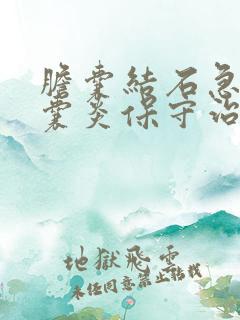 膽囊結石急
囊炎保守治
地獄飛雪
未任同意禁止轉載